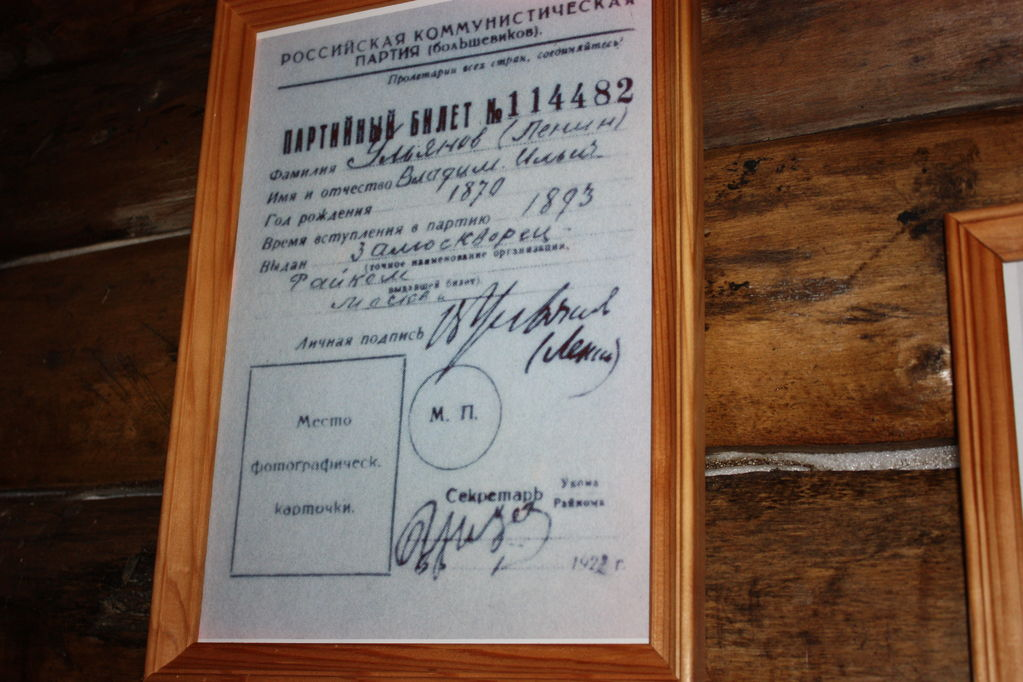 РОССИЙСКАЯ КОММУНИСТИЧЕСКАЯ
ПАРТИЯ (большевиков).
Пролетарии всех стран, соединяйтесь!
ПАРТИЙНЫЙ БИЛЕТ №114482
Фамилия Ульянов (Ленин)
Имя и отчество Владим. Ильич
Год рождения 1870
Время вступления в партию 1893
Выдан Замоскворец.
(точное наименование организации,
Райком
выдавшей билет)
Москва
Личная подпись В Ульянов
(Ленин)
Место
фотографическ.
карточки.
М. П.
Секретарь Укома
Райкома
1922 г.